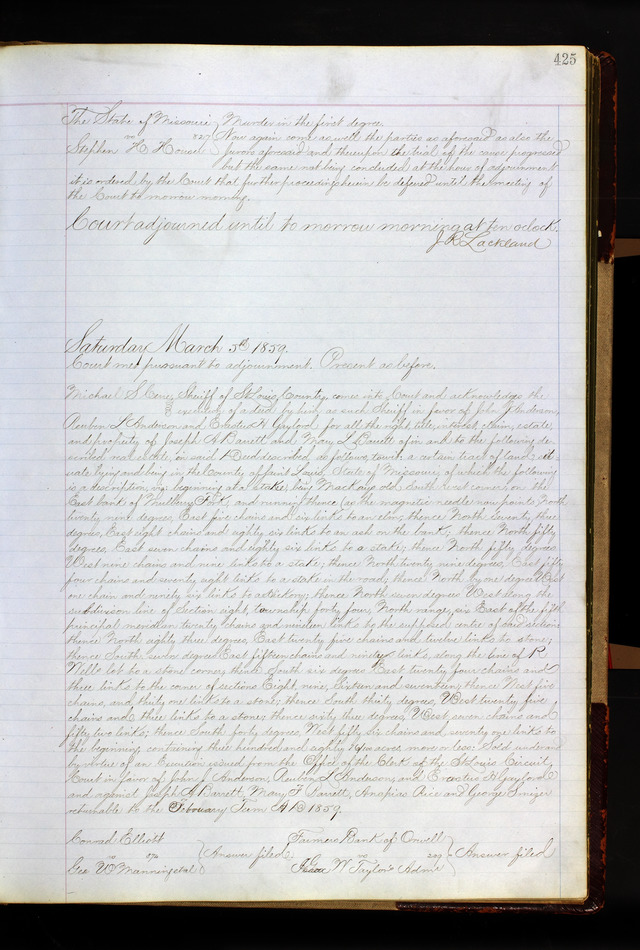 425
The State of Missouri } Murder in the first degree.
vs 827 } Now again come as well the parties as aforesaid as also the
Stephen H. House } jurors aforesaid and thereupon the trial of the cause progressed
but the same not being concluded at the hour of adjournment
it is ordered by the Court that further proceedings herein be defered until the meeting of
the Court to morrow morning.
Court adjourned until to morrow morning at ten oclock.
J R Lackland
Saturday March 5th 1859.
Court met pursuant to adjournment. Present as before.
Michael S Cerre, Sheriff of St Louis County comes into Court and acknowledges the
execution of a deed by him as such Sheriff in favor of John J Anderson,
Reuben L Anderson and Erastus H Gaylord for all the right, title, interest, claim, estate,
and property of Joseph A Barrett and Mary L Barrett of in and to the following de-
scribed real estate, in said Deed described, as follows, towit: a certain tract of land sit
uate lying and being in the County of Saint Louis, State of Missouri, of which the following
is a description, viz: beginning at a stake, being Mackays old South west corner, on the
East bank of Mulberry Fork, and running thence (as the magnetic needle now points) North
twenty nine degrees, East five chains and six links to an elm; thence North seventy three
degrees, East eight chains and eighty six links to an ash on the bank; thence North fifty
degrees, East seven chains and eighty six links to a stake; thence North fifty degrees
West nine chains and nine links to a stake; thence North twenty nine degrees, East fifty
four chains and seventy eight links to a stake in the road; thence North by one degree West
one chain and ninety six links to a Hickory; thence North seven degrees West along the
subdivision line of Section eight, township forty four, North range, six East of the fifth
principal meridian twenty chains and nineteen links to the supposed centre of said section
thence North eighty three degrees, East twenty five chains and twelve links to stone;
thence South, seven degrees East fifteen chains and nineteen links, along the line of R.
Wells lot to a stone corner, thence South six degrees East twenty four chains and
three links to the corner of sections Eight, nine, sixteen and seventeen; thence West five
chains, and thirty one links to a stone; thence South thirty degrees, West twenty five
chains and three links to a stone; thence sixty three degrees, West, seven chains and
fifty two links; thence South forty degrees, West fifty six chains and seventy one links to
the beginning, containing three hundred and eighty acres more or less: Sold under and
by virtue of an Execution issued from the Office of the Clerk of the St Louis Circuit
Court in favor of John J Anderson, Reuben L Anderson and Erastus H Gaylord
and against Joseph A Barrett, Mary L Barrett, Rice and George Smizer
returnable to the February Term A D 1859.
Conrad Elliott } Farmers Bank of }
vs } Answer filed. vs 289 } Answer filed
Geo W Manning et al } Isaac W Taylor Admr }